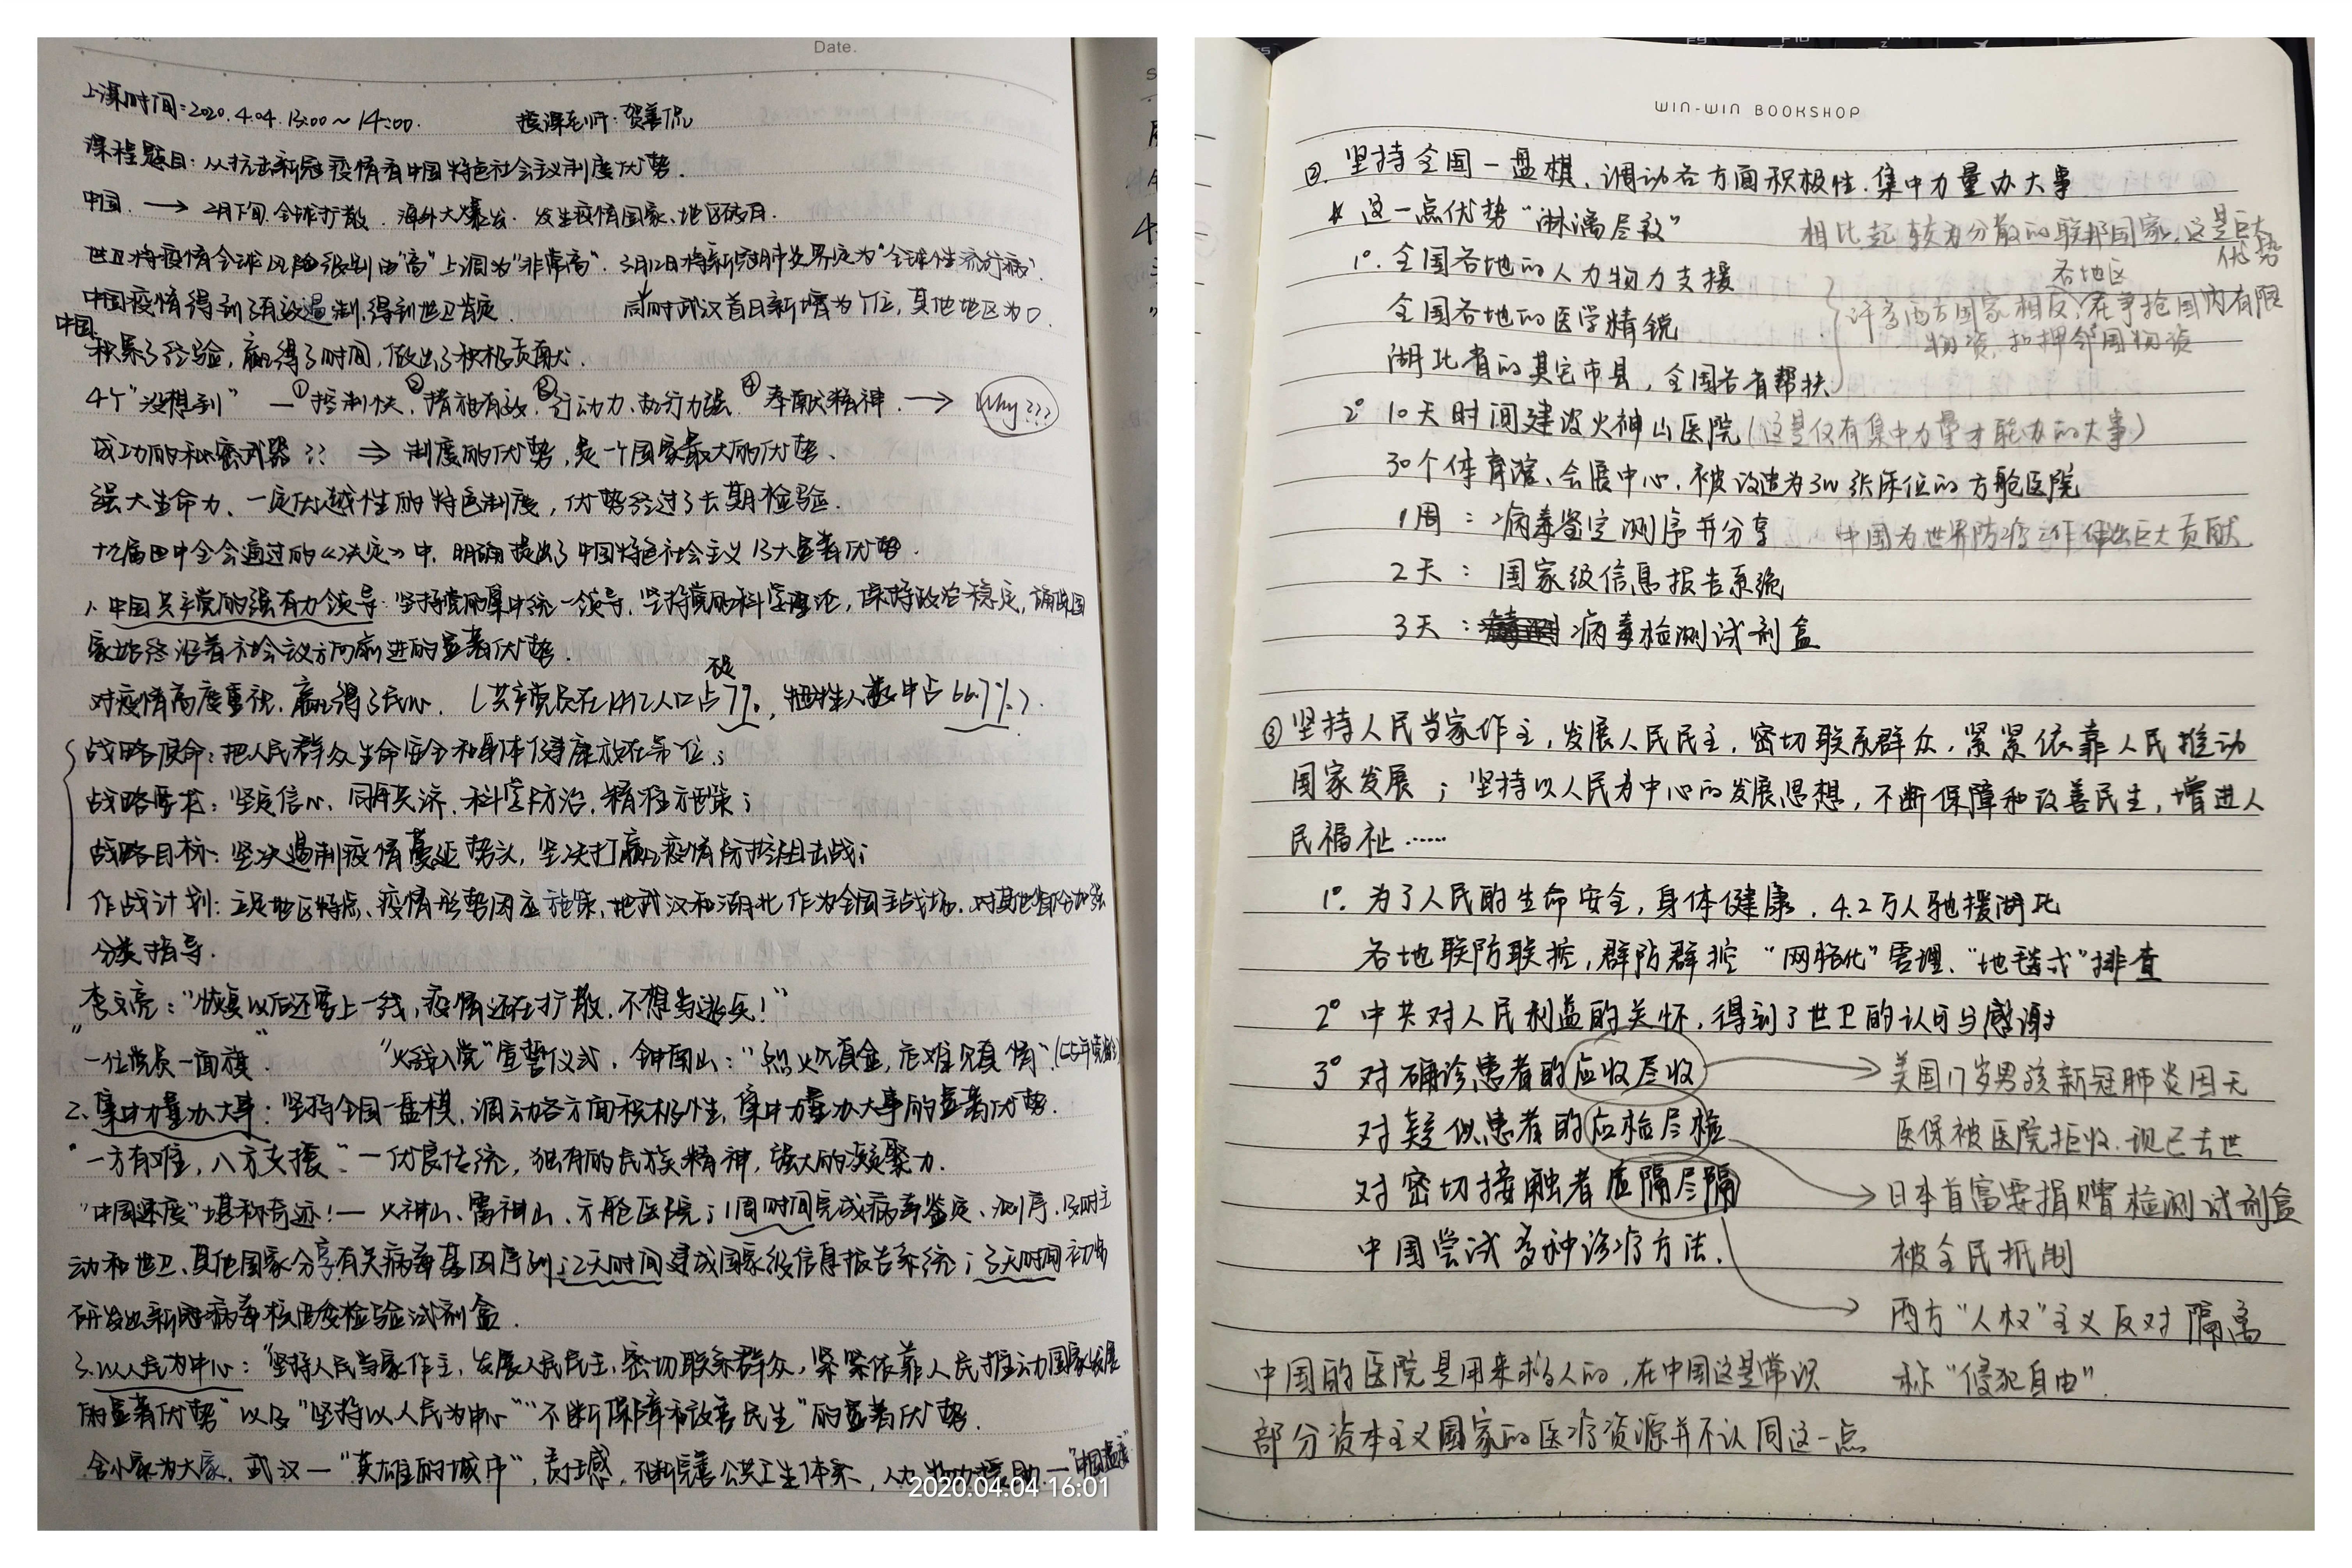 Date.
上课时间:2020.4.04. 13:00~14:00. 授课老师:贺善侃
课程题目:从抗击新冠疫情看中国特色社会主义制度优势.
中国. → 2月下旬.全球扩散. 海外大爆发. 发生疫情国家、地区
世卫将疫情全球风险级别由“高”上调为“非常高”. 3月12日将新冠肺炎界定为“全球性流行病”.
中国疫情得到了有效遏制.得到世卫肯定. 同时武汉首日新增为个位,其他地区为0.
中国:
积累了经验,赢得了时间,做出了积极贡献.
4个“没想到” —①控制快.②措施有效.③行动力、执行力强.④奉献精神. → Why???
成功的秘密武器?? ⇒ 制度的优势,是一个国家最大的优势、
强大生命力、一定优越性的特色制度,优势经过了长期检验.
十九届四中全会通过的《决定》中,明确提出了中国特色社会主义13大显著优势.
1.中国共产党的强有力领导:坚持党的集中统一领导,坚持党的科学理论,保持政治稳定,确保国
家始终沿着社会主义方向前进的显著优势.
对疫情高度重视.赢得了民心. (共产党员在14亿人口占不足7%,牺牲人数中占66.7%).
战略使命:把人民群众生命安全和身体健康放在第一位;
战略要求:坚定信心、同舟共济、科学防治,精准施策;
战略目标:坚决遏制疫情蔓延势头,坚决打赢疫情防控阻击战;
作战计划:立足地区特点、疫情形势因应施策,把武汉和湖北作为全国主战场.对其他省份加强
分类指导.
李文亮:“恢复以后还要上一线,疫情还在扩散,不想当逃兵!”
“一位党员一面旗” “火线入党”宣誓仪式. 钟南山:“烈火见真金,危难显真情”.(55年党龄)
2.集中力量办大事:坚持全国一盘棋,调动各方面积极性,集中力量办大事的显著优势.
“一方有难,八方支援”—优良传统,独有的民族精神,强大的凝聚力.
“中国速度”堪称奇迹!— 火神山、雷神山、方舱医院;1周时间完成病毒鉴定、测序,及时主
动和世卫、其他国家分享有关病毒基因序列;2天时间建成国家级信息报告系统;3天时间初步
研发出新冠病毒核酸检验试剂盒.
3.以人民为中心:“坚持人民当家作主,发展人民民主,密切联系群众,紧紧依靠人民推动国家发展
的显著优势”以及“坚持以人民为中心”“不断保障和改善民生”的显著优势.
舍小家为大家. 武汉—“英雄的城市”,责任感,不断完善公共卫生体系,人力物力援助—“中国温度”
2020.04.04 16:01
WIN-WIN BOOKSHOP
②. 坚持全国一盘棋、调动各方面积极性.集中力量办大事
* 这一点优势“淋漓尽致” 相比起较为分散的联邦国家,这是巨大优势
1°. 全国各地的人力物力支援
全国各地的医学精锐
湖北省的其它市县,全国各省帮扶
许多西方国家相反,各地区在争抢国内有限
物资,扣押邻国物资
2° 10天时间建设火神山医院(这是仅有集中力量才能办的大事)
30个体育馆、会展中心,被改造为3w张床位的方舱医院
1周:病毒鉴定测序并分享 中国为世界防疫工作作出巨大贡献
2天:国家级信息报告系统
3天:病毒检测试剂盒
③坚持人民当家作主,发展人民民主,密切联系群众,紧紧依靠人民推动
国家发展;坚持以人民为中心的发展思想,不断保障和改善民生,增进人
民福祉……
1°. 为了人民的生命安全,身体健康,4.2万人驰援湖北
各地联防联控,群防群控 “网格化”管理、“地毯式”排查
2° 中共对人民利益的关怀,得到了世卫的认可与感谢
3° 对确诊患者的应收尽收 → 美国17岁男孩新冠肺炎因无
医保被医院拒收.现已去世
对疑似患者的应检尽检 → 日本首富要捐赠检测试剂盒
被全民抵制
对密切接触者应隔尽隔 → 西方“人权”主义反对隔离
称“侵犯自由”.
中国尝试多种诊疗方法.
中国的医院是用来救人的,在中国这是常识
部分资本主义国家的医疗资源并不认同这一点